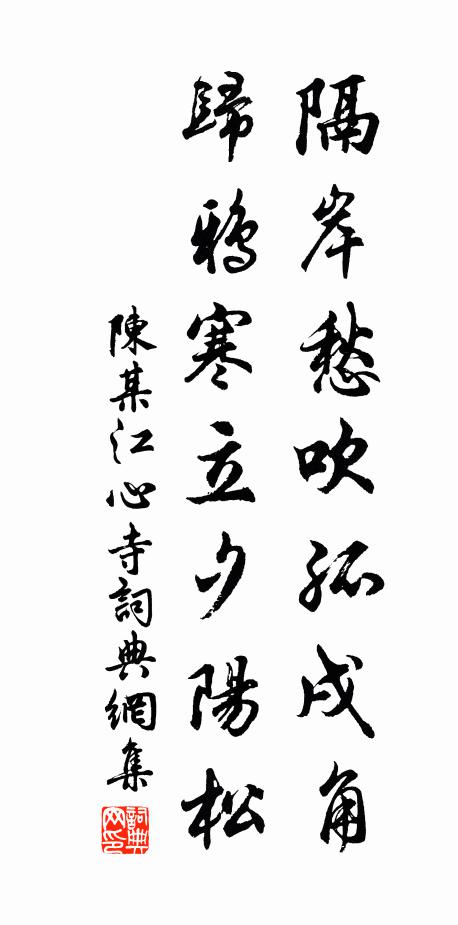 隔岸愁吹孤戍角
歸鴉寒立夕陽松
陳某江心寺詞典網集
詞典网印